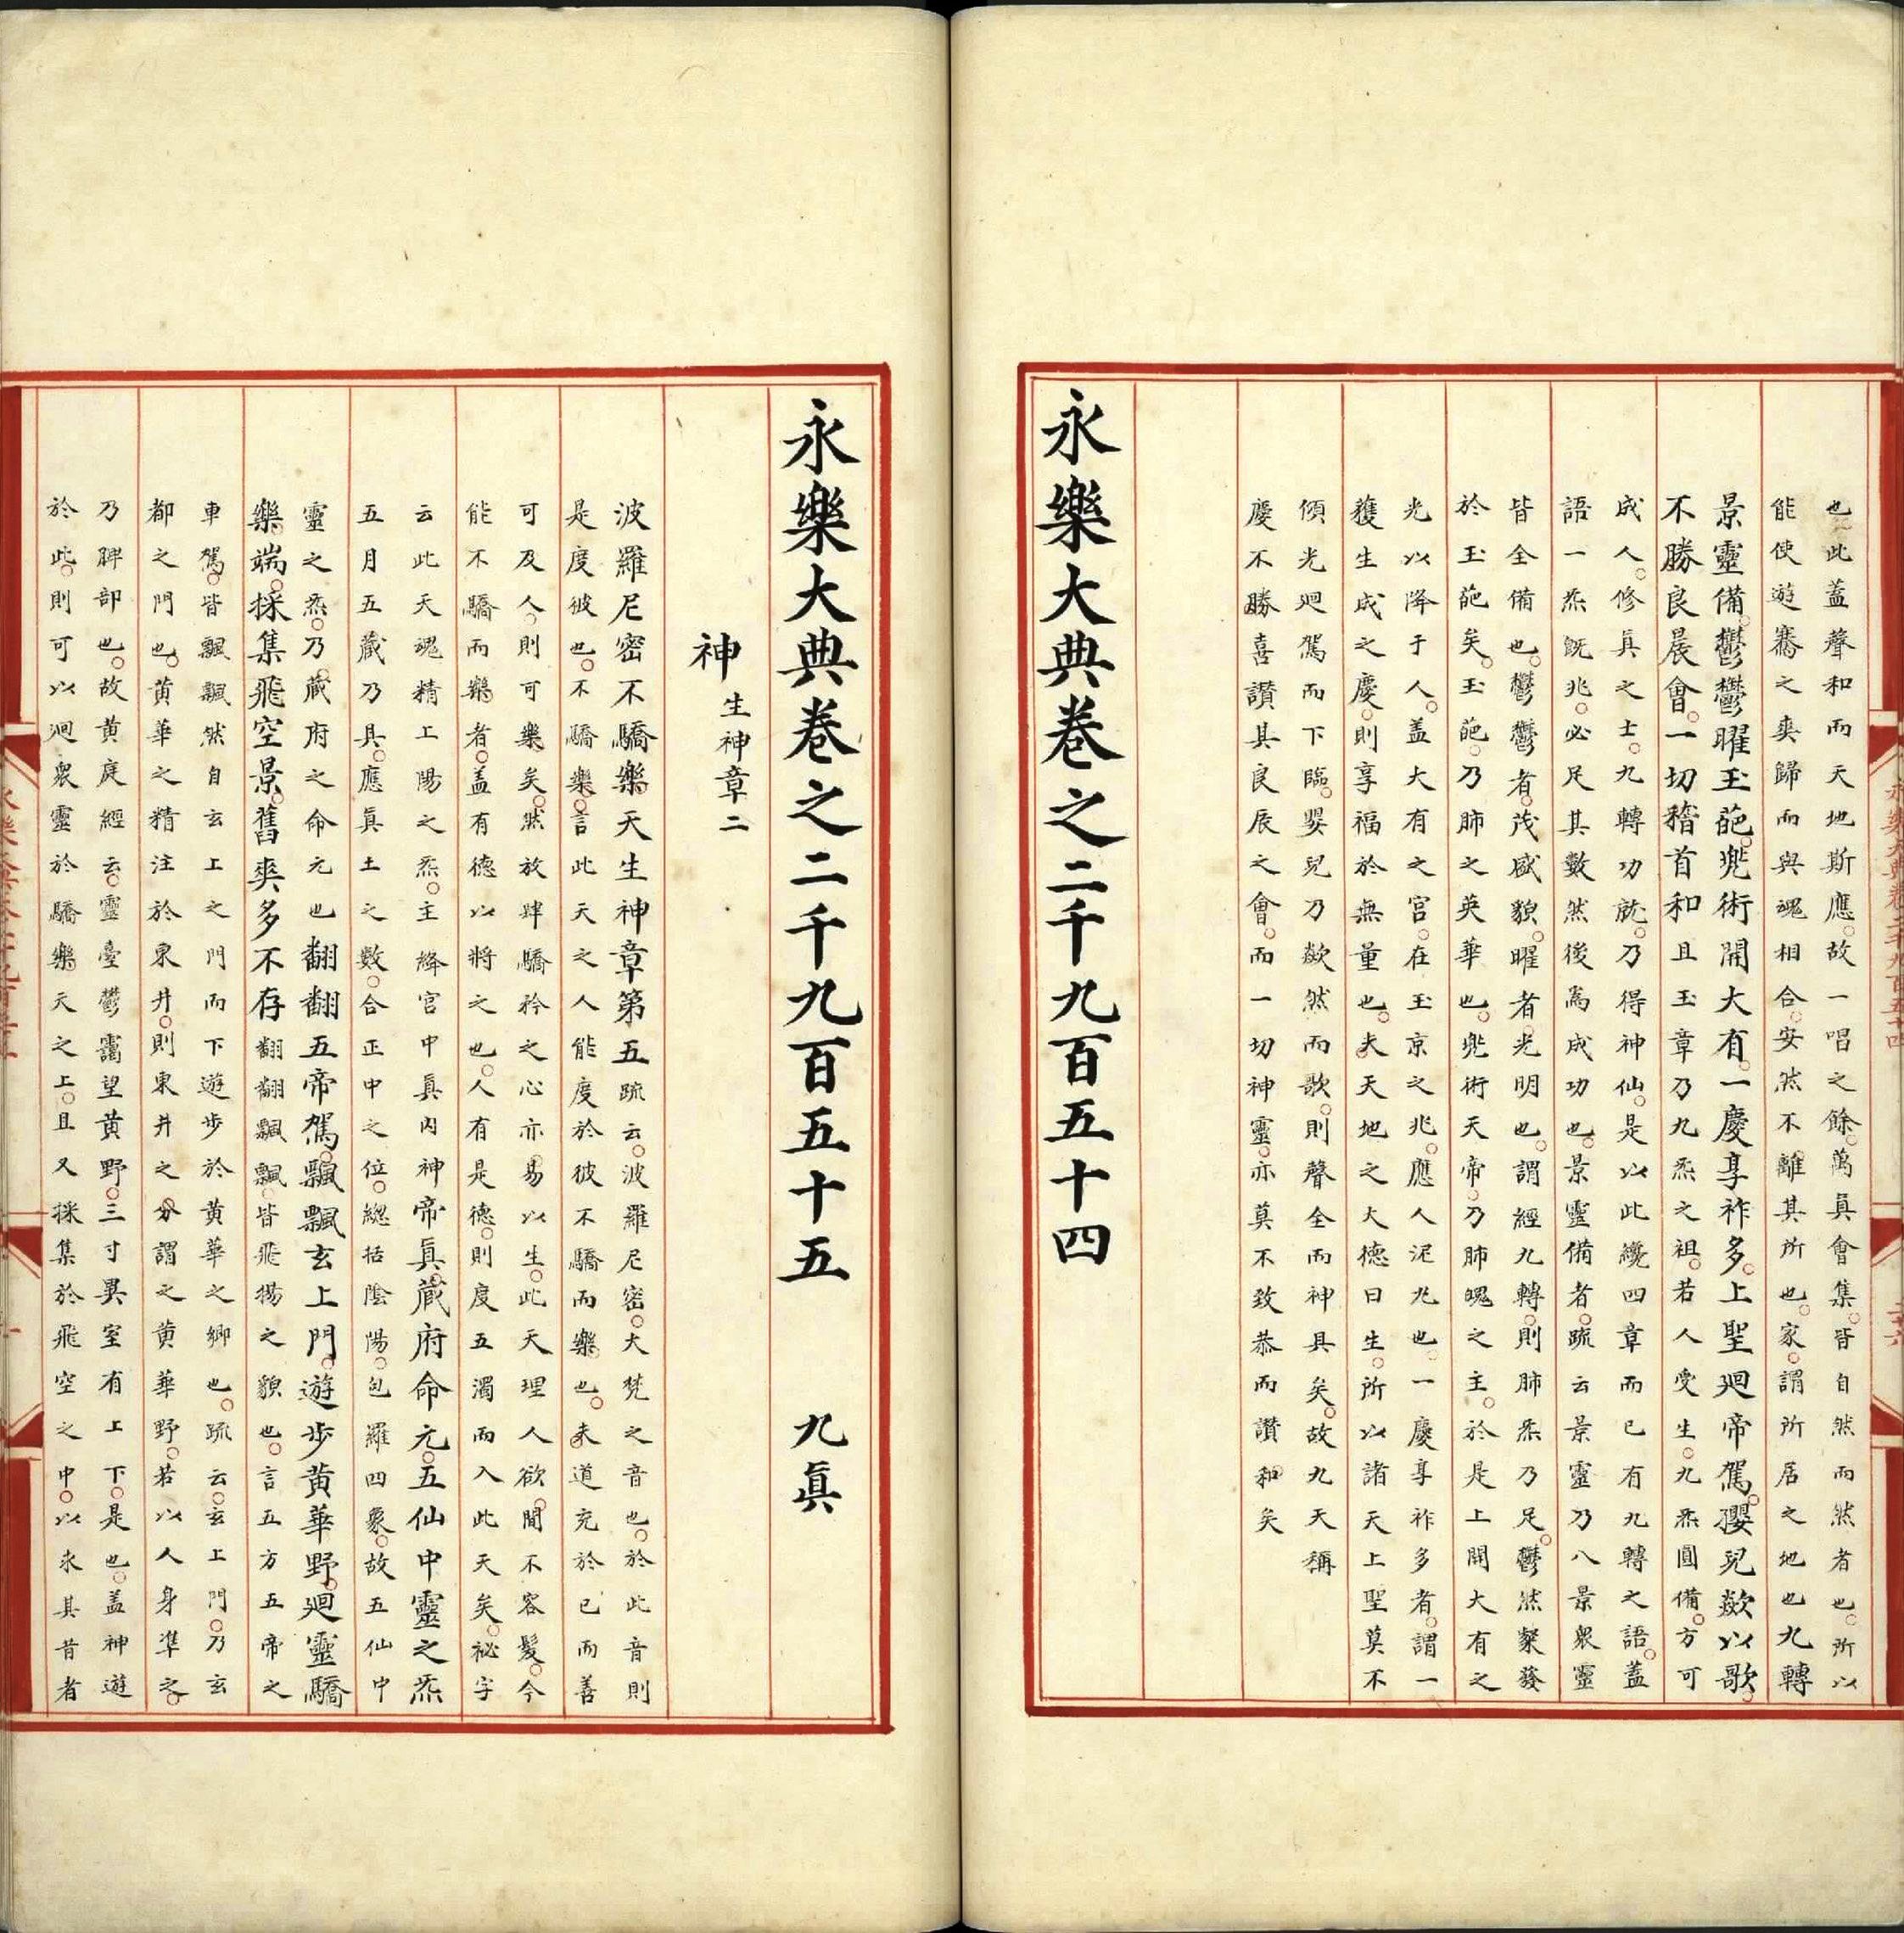 也此蓋聲和而天地斯應故一唱之餘萬真會集皆自然而然者也所以
能使遊騫之爽歸而與魂相合安然不離其所也家謂所居之地也九轉
景靈備鬱鬱曜玉葩兠術開大有一慶享祚多上聖廻帝駕嬰兒歘以歌
不勝良晨會一切稽首和且玉章乃九炁之祖若人受生九炁圓備方可
成人修真之士九轉功就乃得神仙是以此纔四章而已有九轉之語蓋
語一炁既兆必足其數然後爲成功也景靈備者疏云景靈乃八景衆靈
皆全備也鬱鬱者茂盛貌曜者光明也謂經九轉則肺炁乃足鬱然粲發
於玉葩矣玉葩乃肺之英華也兠術天帝乃肺魄之主於是上開大有之
光以降于人蓋大有之宮在玉京之兆應人泥丸也一慶享祚多者謂一
獲生成之慶則享福於無量也夫天地之大德曰生所以諸天上聖莫不
傾光廻駕而下臨嬰兒乃歘然而歌則聲全而神具矣故九天稱
慶不勝喜讚其良辰之會而一切神靈亦莫不致恭而讚和矣
永樂大典卷之二千九百五十四
永樂大典卷之二千九百五十五 九真
神 生神章二
波羅尼密不驕樂天生神章第五疏云波羅尼密大梵之音也於此音則
是度彼也不驕樂言此天之人能度於彼不驕而樂也夫道充於已而善
可及人則可樂矣然放肆驕矜之心亦易以生此天理人欲間不容髮今
能不驕而樂者蓋有德以將之也人有是德則度五濁而入此天矣祕字
云此天魂精上陽之炁主絳宮中真内神帝真藏府命元五仙中靈之炁
五月五藏乃具應真土之數合正中之位總括陰陽包羅四象故五仙中
靈之炁乃藏府之命元也翻翻五帝駕飄飄玄上門遊步黃華野廻靈驕
樂端採集飛空景舊爽多不存翻翻飄飄皆飛揚之貌也言五方五帝之
車駕皆飄飄然自玄上之門而下遊步於黃華之鄉也疏云玄上門乃玄
都之門也黃華之精注於東井則東井之分謂之黃華野若以人身準之
乃脾部也故黃庭經云靈臺鬱靄望黃野三寸異室有上下是也蓋神遊
於此則可以廻衆靈於驕樂天之上且又採集於飛空之中以求其昔者